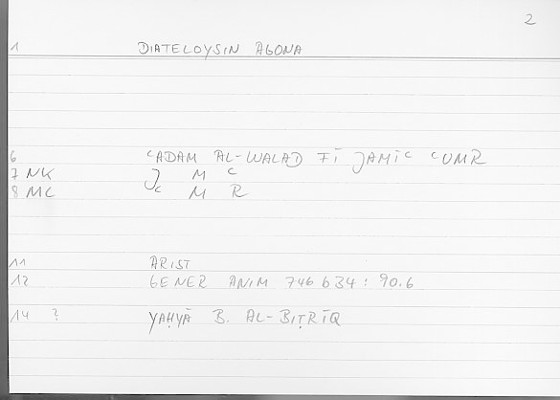 2
1 DIATELOYSIN AGONA
6 ʿADAM AL-WALAD FĪ JAMĪʿ ʿUMR
7 NK J M ʿ
8 ML ʿ M R
11 ARIST
12 GENER ANIM 746 b34 : 90.6
14 ? YAḤYĀ B. AL-BIṬRĪQ